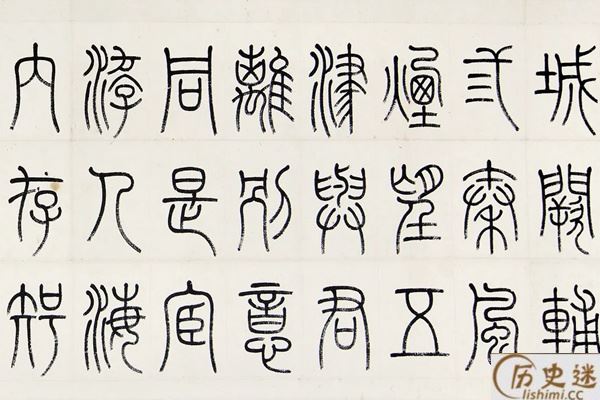 城闕輔
三秦風
煙望五
津與君
離別意
同是宦
游人海
內存知
历史迷
lishimi.cc